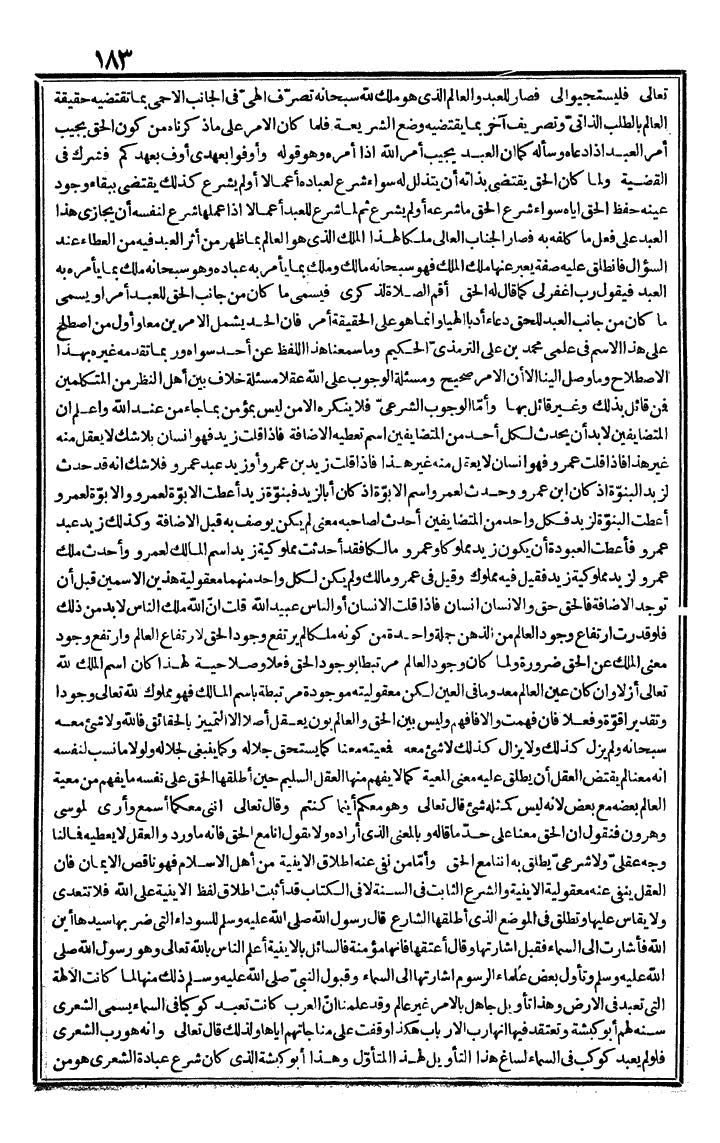 ١٨٣
تعالى فليستجيبوا لى فصار للعبد والعالم الذى هو ملك لله سبحانه تصرّف الهىّ فى الجانب الاحمى بما تقتضيه حقيقة
العالم بالطلب الذاتىّ وتصريف آخر بما يقتضيه وضع الشريعة فلما كان الامر على ماذكرناه من كون الحق يجيب
أمر العبد اذا دعاه وسأله كما ان العبد يجيب أمر الله اذا أمره وهو قوله وأوفوا بعهدى أوف بعهدكم فشرك فى
القضية ولما كان الحق يقتضى بذاته أن يتذلل له سواء شرع لعباده أعمالا أولم يشرع كذلك يقتضى ببقاء وجود
عينه حفظ الحق اياه سواء شرع الحق ما شرعه أولم يشرع ثم لما شرع للعبد أعمالا اذا عملها شرع لنفسه أن يجازى هذا
العبد على فعل ما كلفه به فصار الجناب العالى ملكا لهذا الملك الذى هو العالم بما ظهر من أثر العبد فيه من العطاء عند
السؤال فانطلق عليه صفة يعبر عنها ملك الملك فهو سبحانه مالك وملك بما يأمر به عباده وهو سبحانه ملك بما يأمره به
العبد فيقول رب اغفر لى كما قال له الحق أقم الصلاة لذكرى فيسمى ما كان من جانب الحق للعبد أمرا ويسمى
ما كان من جانب العبد للحق دعاء أدبا الهيا وانما هو على الحقيقة أمر فان الحد يشمل الامرين معا وأول من اصطلح
على هذا الاسم فى علمى محمد بن على الترمذىّ الحكيم وما سمعنا هذا اللفظ عن أحد سواه وربما تقدمه غيره بهذا
الاصطلاح وما وصل الينا الا أن الامر صحيح ومسئلة الوجوب على الله عقلا مسئلة خلاف بين أهل النظر من المتكلمين
فن قائل بذلك وغير قائل بها وأمّا الوجوب الشرعىّ فلا ينكره الا من ليس بمؤمن بما جاء من عند الله واعلم ان
المتضايفين لابد أن يحدث لكل أحد من المتضايفين اسم تعطيه الاضافة فاذا قلت زيد فهو انسان بلاشك لا يعقل منه
غير هذا فاذا قلت عمرو فهو انسان لا يعقل منه غير هذا فاذا قلت زيد بن عمرو أوزيد عبد عمرو فلاشك انه قد حدث
لزيد البنوّة اذ كان ابن عمرو وحدث لعمرو اسم الابوّة اذ كان أبا لزيد فبنوّة زيد أعطت الابوّة لعمرو والابوّة لعمرو
أعطت البنوّة لزيد فكل واحد من المتضايفين أحدث لصاحبه معنى لم يكن يوصف به قبل الاضافة وكذلك زيد عبد
عمرو فأعطت العبودة أن يكون زيد مملوكا وعمرو مالكا فقد أحدثت مملوكية زيد اسم المالك لعمرو وأحدث ملك
عمرو لزيد مملوكية زيد فقيل فيه مملوك وقيل فى عمرو مالك ولم يكن لكل واحد منهما معقولية هذين الاسمين قبل أن
توجد الاضافة فالحق حق والانسان انسان فاذا قلت الانسان أو الناس عبيد الله قلت انّ الله ملك الناس لابد من ذلك
فلو قدرت ارتفاع وجود العالم من الذهن جملة واحدة من كونه ملكا لم يرتفع وجود الحق لارتفاع العالم وارتفع وجود
معنى الملك عن الحق ضرورة ولما كان وجود العالم مرتبطا بوجود الحق فعلا وصلاحية لهذا كان اسم الملك لله
تعالى أزلا وان كان عين العالم معدوما فى العين لكن معقوليته موجودة مرتبطة باسم المالك فهو مملوك لله تعالى وجودا
وتقديرا قوّة وفعلا فان فهمت والا فافهم وليس بين الحق والعالم بون يعقل أصلا الا التمييز بالحقائق فالله ولا شئ معه
سبحانه ولم يزل كذلك ولا يزال كذلك لا شئ معه فعيته معنا كما يستحق جلاله وكما ينبغى لجلاله ولولا ما نسب لنفسه
انه معنا لم يقتض العقل أن يطلق عليه معنى المعية كما لا يفهم منها العقل السليم حين أطلقها الحق على نفسه ما يفهم من معية
العالم بعضه مع بعض لانه ليس كمثله شئ قال تعالى وهو معكم أينما كنتم وقال تعالى اننى معكما أسمع وأرى لموسى
وهرون فنقول ان الحق معنا على حدّ ما قاله وبالمعنى الذى أراده ولا نقول انا مع الحق فانه ما ورد والعقل لا يعطيه فمالنا
وجه عقلىّ ولا شرعىّ يطلق به اننا مع الحق وأمّا من نفى عنه اطلاق الاينية من أهل الاسلام فهو ناقص الايمان فان
العقل ينفى عنه معقولية الاينية والشرع الثابت فى السنة لا فى الكتاب قد أثبت اطلاق لفظ الاينية على الله فلا تتعدى
ولا يقاس عليها وتطلق فى الموضع الذى أطلقها الشارع قال رسول الله صلى الله عليه وسلم للسوداء التى ضربها سيدها أين
الله فأشارت الى السماء فقبل اشارتها وقال أعتقها فانها مؤمنة فالسائل بالاينية أعلم الناس بالله تعالى وهو رسول الله صلى
الله عليه وسلم وتأول بعض علماء الرسوم اشارتها الى السماء وقبول النبىّ صلى الله عليه وسلم ذلك منها لما كانت الآلهة
التى تعبد فى الارض وهذا تأويل جاهل بالامر غير عالم وقد علمنا انّ العرب كانت تعبد كوكبا فى السماء يسمى الشعرى
سنه لهم أبو كبشة وتعتقد فيها انها رب الارباب هكذا وقفت على مناجاتهم اياها ولذلك قال تعالى وانه هو رب الشعرى
فلو لم يعبد كوكب فى السماء لساغ هذا التأويل لهذا المتأوّل وهذا أبو كبشة الذى كان شرع عبادة الشعرى هو من